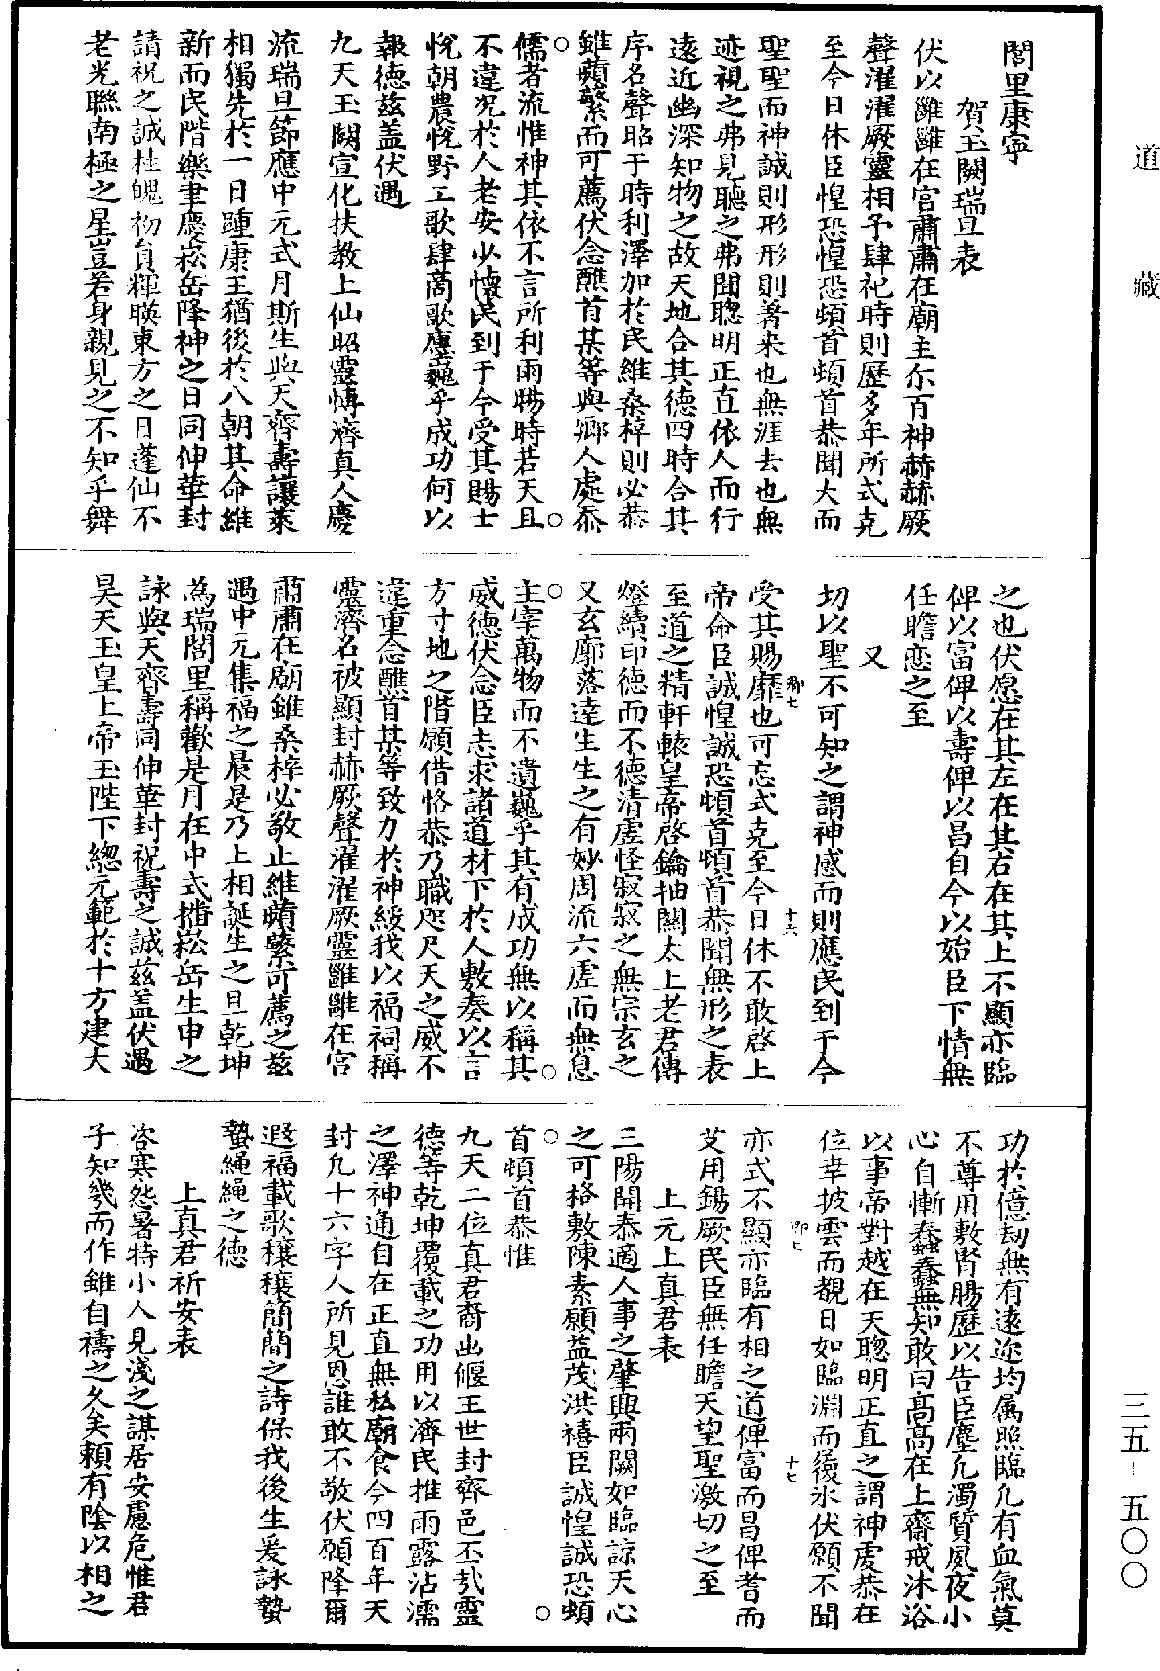 道藏
三五-五〇〇
閭里康寧
賀玉闕瑞旦表
伏以雝雝在宮肅肅在廟主尔百神赫赫厥
聲濯濯厥靈相予肆祀時則歷多年所式克
至今日休臣惶恐惶恐頓首頓首恭聞大而
聖聖而神誠則形形則著来也無涯去也無
迹視之弗見聽之弗聞聰明正直依人而行
遠近幽深知物之故天地合其德四時合其
序名聲昭于時利澤加於民維桑梓則必恭
雖蘋蘩而可薦伏念醮首某等與鄉人處忝
儒者流惟神其依不言所利雨暘時若天且
不違况於人老安少懷民到于今受其賜士
悅朝農悅野工歌肆商歌廛巍乎成功何以
報德茲盖伏遇
九天玉闕宣化扶教上仙昭靈慱濟真人慶
流瑞旦節應中元式月斯生與天齊壽讓萊
相獨先於一日踵康王猶後於八朝其命維
新而民階樂聿慶崧岳降神之日同伸華封
請祝之誠桂魄初負輝暎東方之日蓬仙不
老光聯南極之星豈若身親見之不知乎舞
之也伏愿在其左在其右在其上不顯亦臨
俾以富俾以壽俾以昌自今以始臣下情無
任瞻恋之至
又
切以聖不可知之謂神感而則應民到于今
受其賜靡也可忘式克至今日休不敢啓上
帝命臣誠惶誠恐頓首頓首恭聞無形之表
至道之精軒轅皇帝啓鑰抽關太上老君傳
燈續印德而不德清虛怪寂寂之無宗玄之
又玄廓落達生生之有妙周流六虛而無息
主宰萬物而不遺巍乎其有成功無以稱其
威德伏念臣志求諸道材下於人敷奏以言
方寸地之階願借恪恭乃職咫尺天之威不
違重念醮首某等致力於神綏我以福祠稱
靈濟名被顯封赫厥聲濯濯厥靈雝雝在宮
肅肅在廟雖桑梓必敬止維蘋蘩可薦之茲
遇中元集福之晨是乃上相誕生之旦乾坤
為瑞閭里稱歡是月在中式揩崧岳生申之
詠與天齊壽同伸華封祝壽之誠茲盖伏遇
昊天玉皇上帝玉陛下總元範於十方建大
功於億劫無有遠迩均属照臨凢有血氣莫
不尊用敷腎腸歷以告臣塵凢濁質夙夜小
心自慚蠢蠢無知敢曰髙髙在上齋戒沐浴
以事帝對越在天聰明正直之謂神虔恭在
位幸披雲而覩日如臨淵而履氷伏願不聞
亦式不顯亦臨有相之道俾富而昌俾耆而
艾用錫厥民臣無任瞻天望聖激切之至
上元上真君表
三陽開泰適人事之肇興兩闕如臨諒天心
之可格敷陳素願益茂洪禧臣誠惶誠恐頓
首頓首恭惟
九天二位真君裔出偃王世封齊邑丕㢤靈
德等乾坤覆載之功用以濟民推雨露沾濡
之澤神通自在正直無私廟食今四百年天
封凢十六字人所見恩誰敢不敬伏願降爾
遐福載歌穰穰簡簡之詩保我後生爰詠蟄
蟄繩繩之德
上真君祈安表
咨寒怨暑特小人見淺之謀居安慮危惟君
子知幾而作雖自禱之久矣頼有陰以相之
卿七
十六
卿七
十七